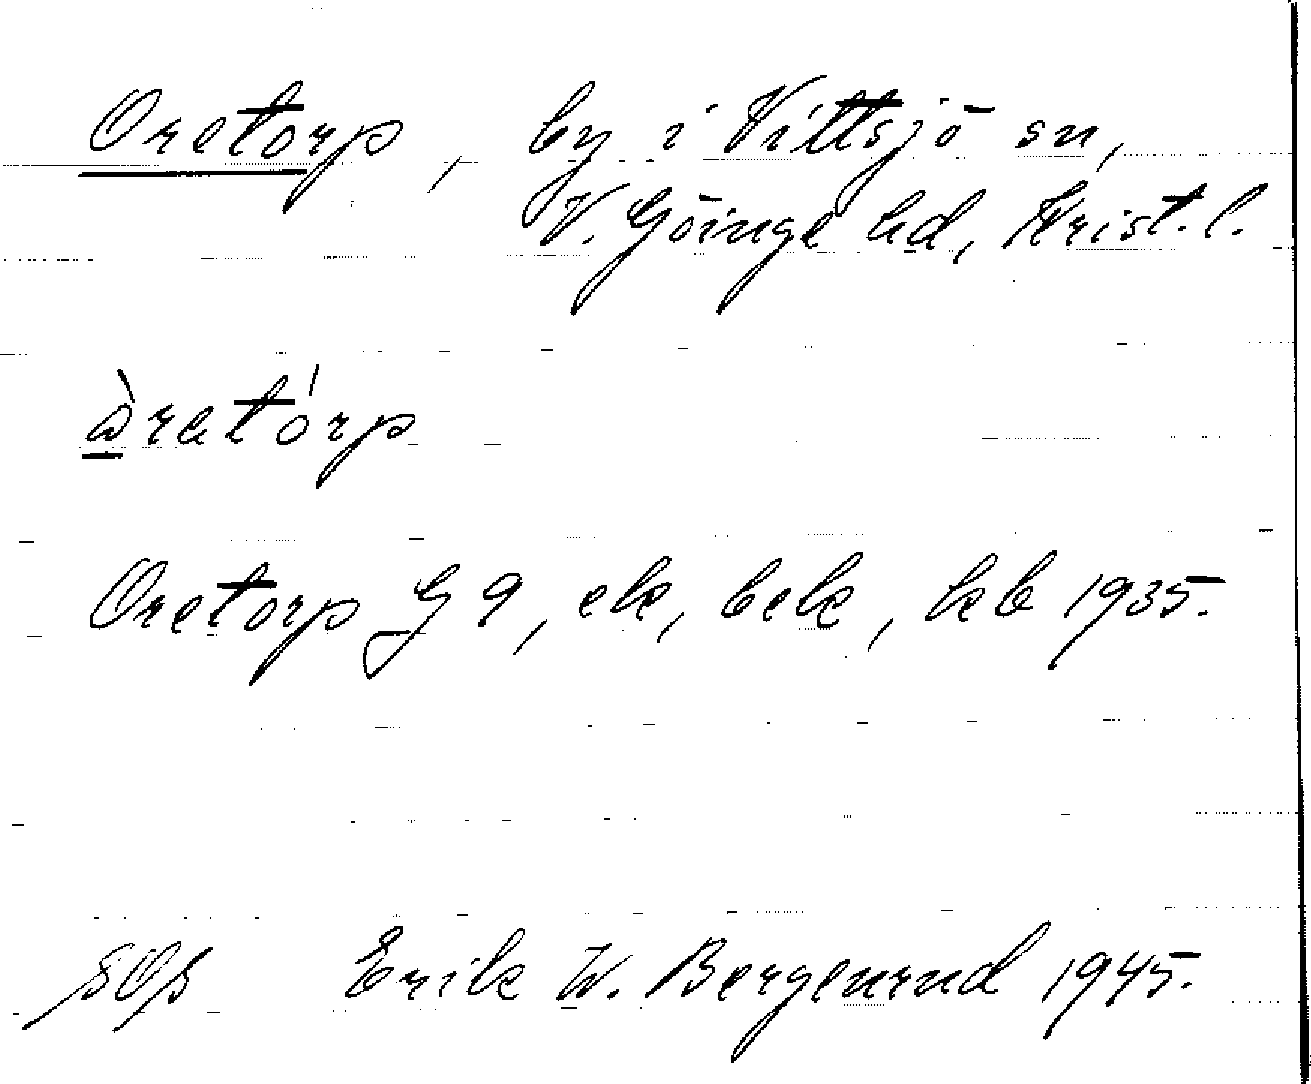 Oretorp, by i Vittsjö sn,
V. Göinge hd, Krist. l.
òratórp
Oretorp G 9, ek, bek, kb 1935.
Erik W. Bergenrud 1945.